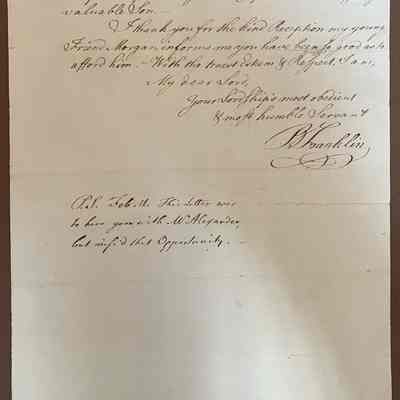 valuable Son.—
I thank you for the kind Reception my young
Friend Morgan informs me you have been so good as to
afford him.— With the truest Esteem & Respect, I am,
My dear Lord,
Your Lordship's most obedient
& most humble Servant
B Franklin
Feb. 11. This Letter was
to have gone with Mr Alexander,
but miss'd that Opportunity.—